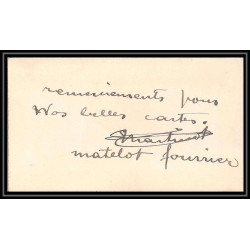 remerciements pour
Vos belles cartes.
Martinot
matelot fourrier